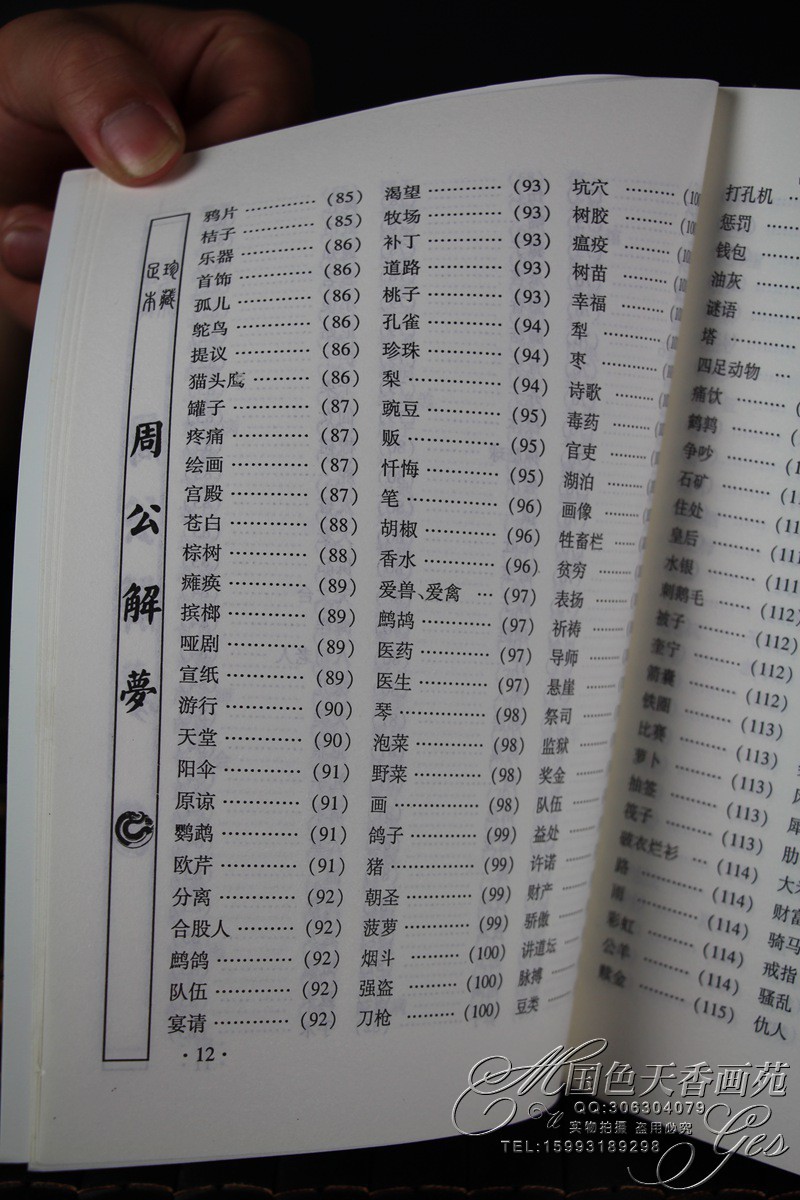 珍藏
足本
周公解夢
鸦片 (85)
桔子 (85)
乐器 (86)
首饰 (86)
孤儿 (86)
鸵鸟 (86)
提议 (86)
猫头鹰 (86)
罐子 (87)
疼痛 (87)
绘画 (87)
宫殿 (87)
苍白 (88)
棕树 (88)
瘫痪 (89)
摈榔 (89)
哑剧 (89)
宣纸 (89)
游行 (90)
天堂 (90)
阳伞 (91)
原谅 (91)
鹦鹉 (91)
欧芹 (91)
分离 (92)
合股人 (92)
鹧鸪 (92)
队伍 (92)
宴请 (92)
·12·
渴望 (93)
牧场 (93)
补丁 (93)
道路 (93)
桃子 (93)
孔雀 (94)
珍珠 (94)
梨 (94)
豌豆 (95)
贩 (95)
忏悔 (95)
笔 (96)
胡椒 (96)
香水 (96)
爱兽、爱禽 (97)
鹧鸪 (97)
医药 (97)
医生 (97)
琴 (98)
泡菜 (98)
野菜 (98)
画 (98)
鸽子 (99)
猪 (99)
朝圣 (99)
菠萝 (99)
烟斗 (100)
强盗 (100)
刀枪 (100)
坑穴
树胶
瘟疫
树苗
幸福
犁
枣
诗歌
毒药
官吏
湖泊
画像
牲畜栏
贫穷
表扬
祈祷
导师
悬崖
祭司
监狱
奖金
队伍
益处
许诺
财产
骄傲
讲道坛
脉搏
豆类
打孔机
惩罚
钱包
油灰
谜语
塔
四足动物
痛饮
鹌鹑
争吵
石矿
住处
皇后
水银
刺鹅毛 (112)
被子 (112)
奎宁 (112)
箭囊 (112)
铁圈 (113)
比赛 (113)
萝卜 (113)
抽签 (113)
筏子 (113)
破衣烂衫 (114)
路 (114)
雨 (114)
彩虹 (114)
公羊 (114)
赎金 (115)
肋
财富
骑马
戒指
骚乱
仇人
国色天香画苑
QQ:306304079
实物拍摄 盗用必究
TEL:15993189298